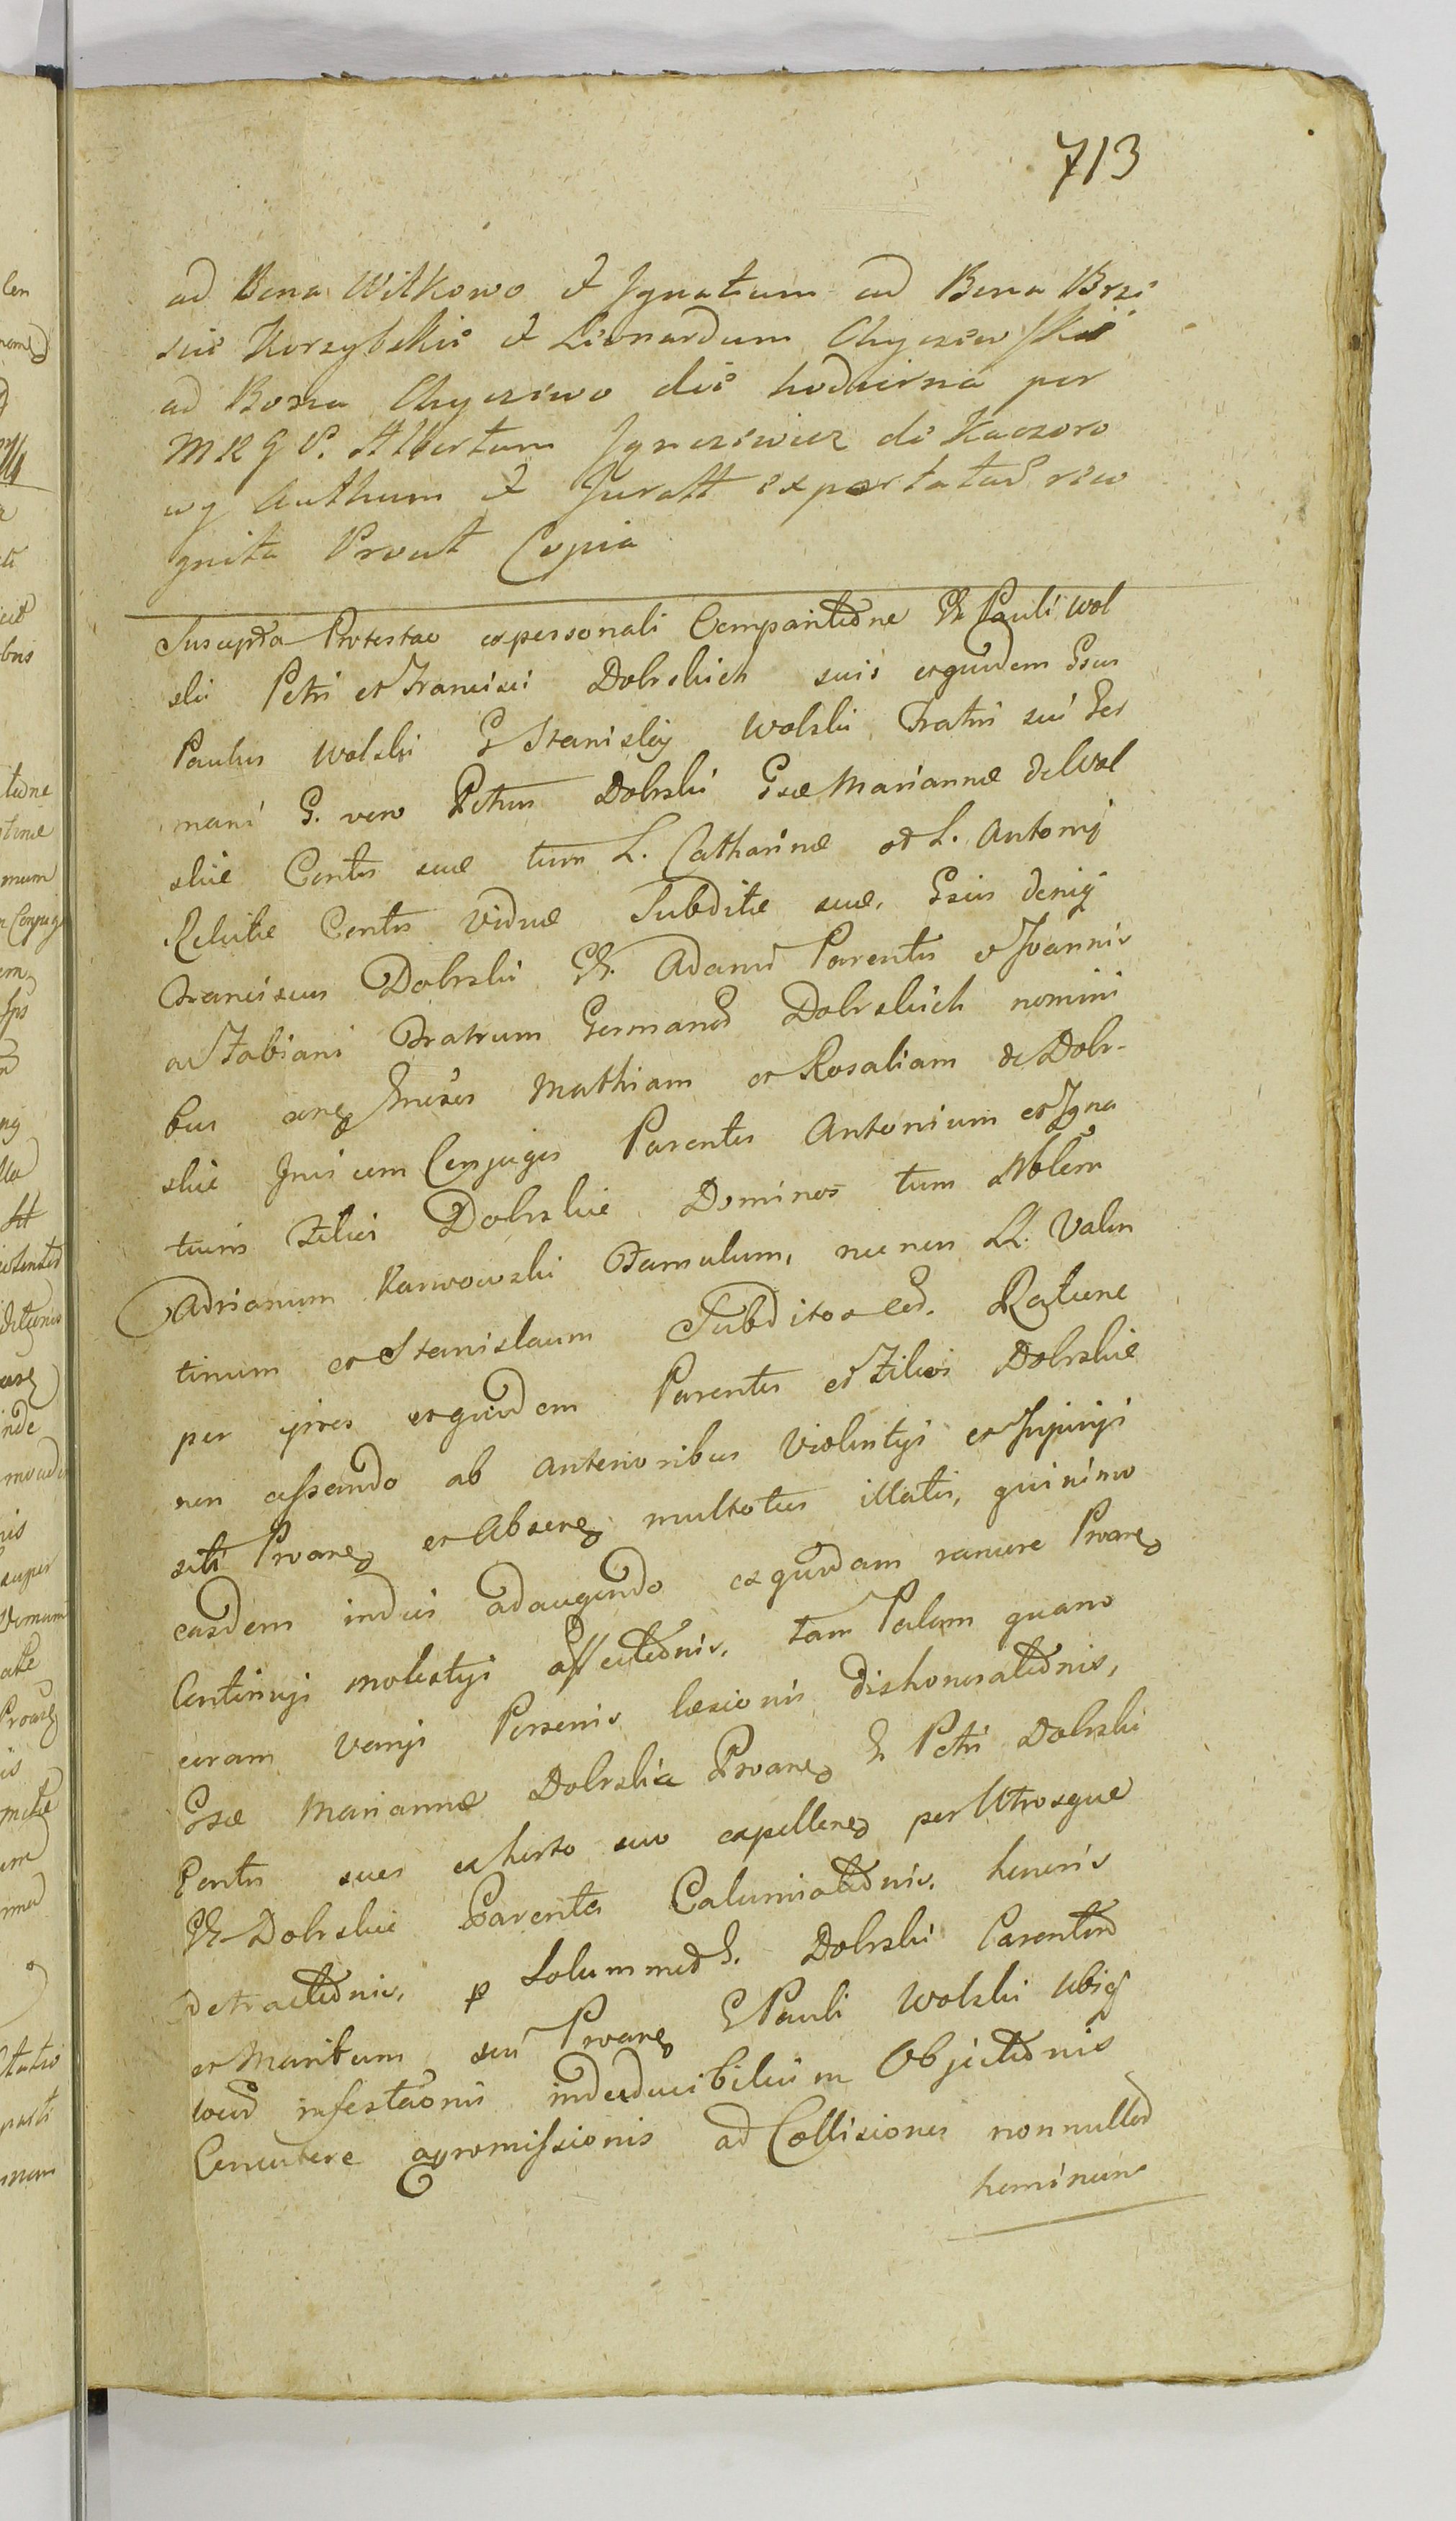 713
ad Bona Witkowo et Ignatium ad Bona Brze
scie Korzybskie et Leonardum Chyczewskie
ad Bona Chyczewo die hodierna per
M R G P. Albertum Ignesiewicz de Kaczoro
wy Authum et Juratt exportataê reco
gnita Prout Copia
Suscepta Protestao ex personali Comparitione GG. Pauli Wol
ski Petri et Francisci Dobrskich suis et quidem Gsus
Paulus Wolski G Stanislai Wolski Fratris sui Ger
mani G. vero Petrus Dobrski Gsae Mariannae de Wol
skie Contis suae tum L. Catharinae ot L. Antonij
Relictae Contis Viduae Subditae suae, Gsus deniq
Franciscus Dobrski GG. Adami Parentis et Joannis
ac Fabiani Fratrum Germanoȓ Dobrskich nomini
bus Mathiam et Rosaliam de Dobr-
skie Invicem Conjuges Parentes Antonium et Igna
tium Filios Dobrskie Dominos tum Noblem
Adrianum Karwowski Famulum, nec non LL. Valen
tinum et Stanislaum Subditos eoȓ. Ratione
per ipsos et quidem Parentes et Filios Dobrskie
non cessando ab anterioribus Violentijs et Injurijs
sibi Proaneȝ et Abseneȝ multoties illatis, quinimo
easdem indies adaugendo ex quadam rancore Proaneȝ
Continuji molestiji affectionis, tam Palam quam
coram Varijs Personis laesionis dishonoraționis,
Gsae Mariannae Dobrskie Proaneȝ G Petri Dobrski
Contis suae ex horto suo expelleneȝ per Utrosque
GG. Dobrskie Parentes Calumniationis, honoris
detractionis, p Solummodo G. Dobrski Parentem
et Maritum seu Proaneȝ G Pauli Wolski ubiq
locoȓ infestaõnis indeducibilium Objectionis
Concutere apromissionis ad Collisiones nonnulloȓ
hominum